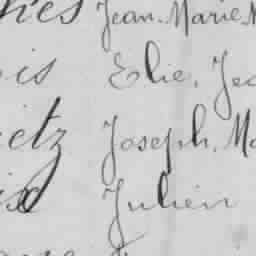 Jean. Marie
is Elie. Je
etz Joseph. Ma
Julien